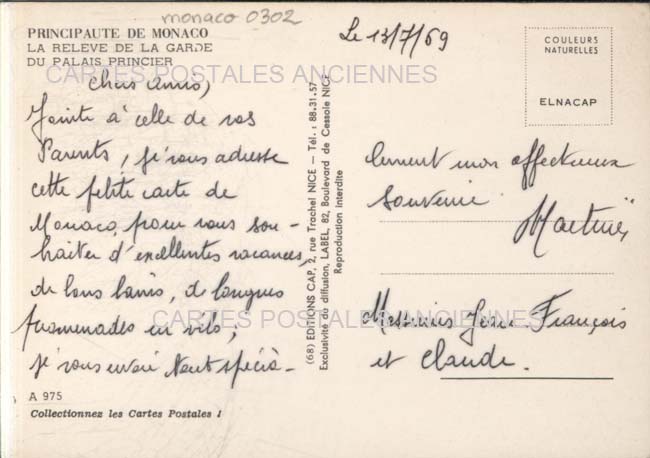 monaco 0302
PRINCIPAUTE DE MONACO
LA RELEVE DE LA GARDE
DU PALAIS PRINCIER
CARTES POSTALES ANCIENNES
Chers Amis,
Jointe à celle de vos
Parents, je vous adresse
cette petite carte de
Monaco, pour vous sou-
haiter d'excellentes vacances,
de bons bains, de longues
promenades en vélo;
je vous envoie tout spécia-
A 975
Collectionnez les Cartes Postales !
(68) EDITIONS CAP, 2, rue Trachel NICE — Tél. : 88.31.57
Exclusivité de diffusion, LABEL, 82, Boulevard de Cessole NICE
Reproduction interdite
Le 13/7/69
COULEURS
NATURELLES
ELNACAP
lement mon affectueux
souvenir.
Martine
CARTES POSTALES ANCIENNES
Messieurs Jean François
et Claude.